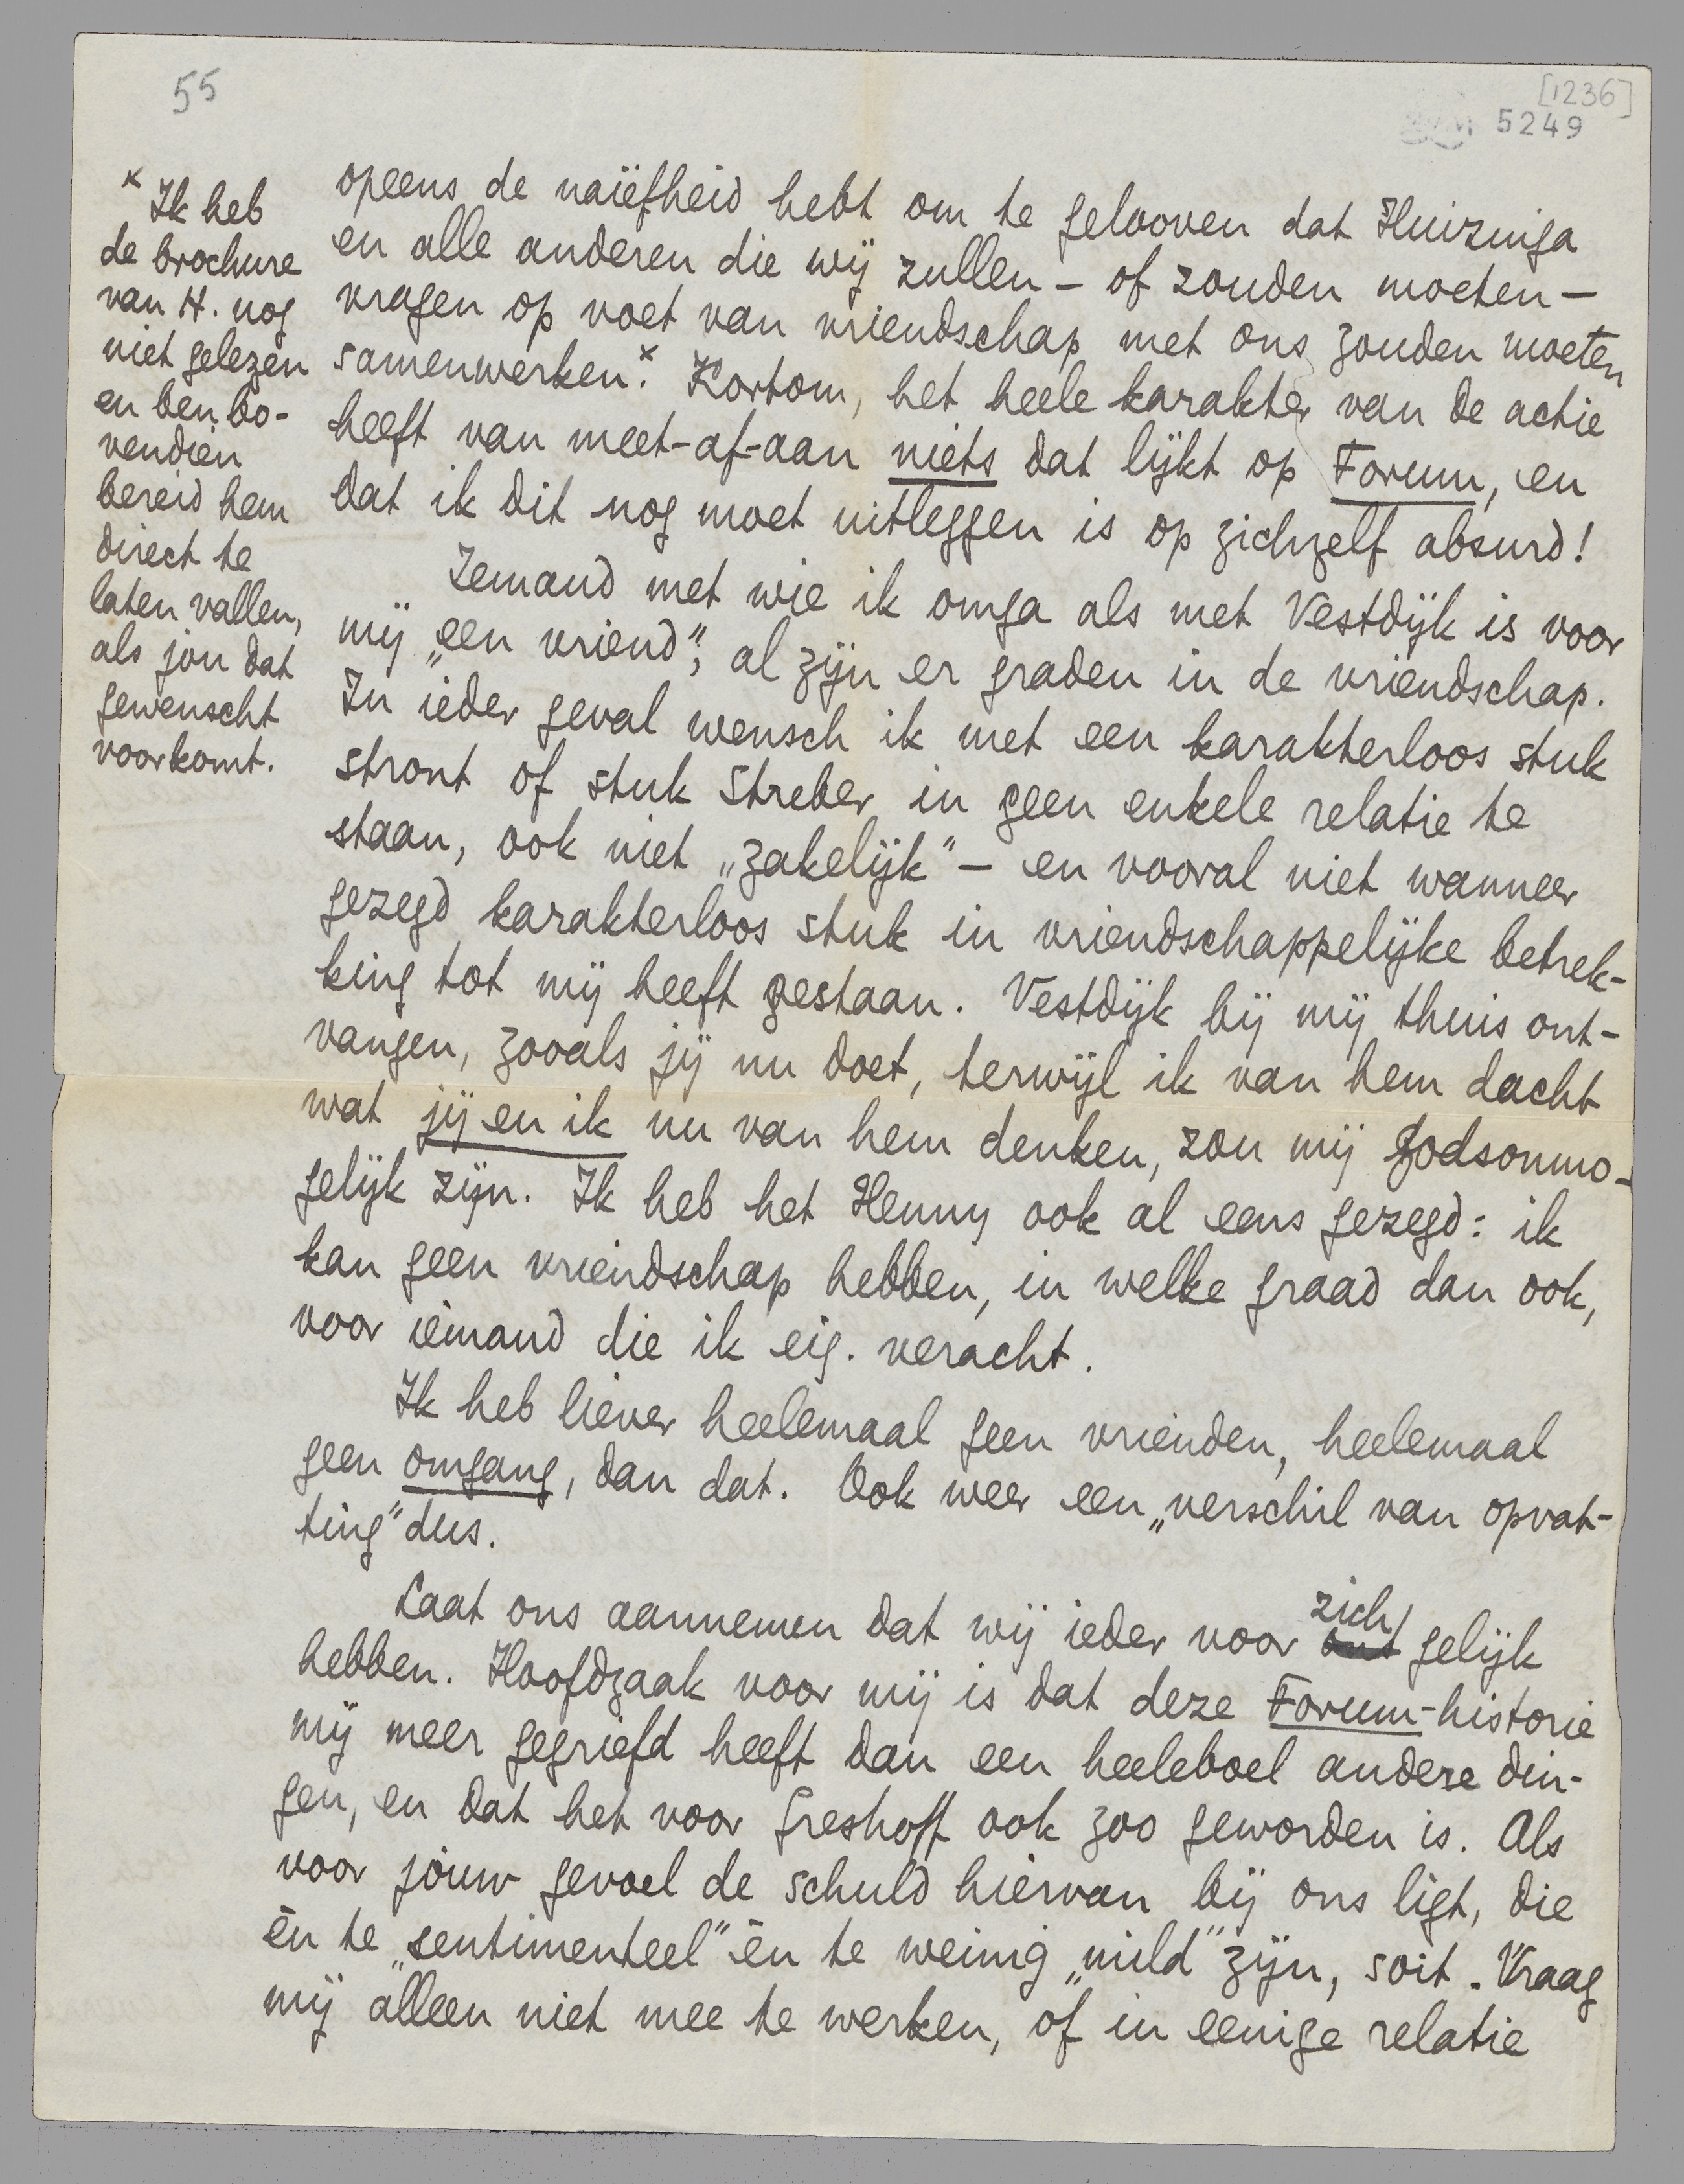 55
[1236]
5249
× Ik heb
de brochure
van H. nog
niet gelezen
en ben bo-
vendien
bereid hem
direct te
laten vallen,
als jou dat
gewenscht
voorkomt.
opeens de naïefheid hebt om te gelooven dat Huizinga
en alle anderen die wij zullen – of zouden moeten –
vragen op voet van vriendschap met ons zouden moeten
samenwerken.× Kortom, het heele karakter van de actie
heeft van meet-af-aan niets dat lijkt op Forum, en
dat ik dit nog moet uitleggen is op zichzelf absurd!
Iemand met wie ik omga als met Vestdijk is voor
mij „een vriend", al zijn er graden in de vriendschap.
In ieder geval wensch ik met een karakterloos stuk
stront of stuk Streber in geen enkele relatie te
staan, ook niet „zakelijk" – en vooral niet wanneer
gezegd karakterloos stuk in vriendschappelijke betrek-
king tot mij heeft gestaan. Vestdijk bij mij thuis ont-
vangen, zooals jij nu doet, terwijl ik van hem dacht
wat jij en ik nu van hem denken, zou mij godsonmo-
gelijk zijn. Ik heb het Henny ook al eens gezegd: ik
kan geen vriendschap hebben, in welke graad dan ook,
voor iemand die ik eig. veracht.
Ik heb liever heelemaal geen vrienden, heelemaal
geen omgang, dan dat. Ook weer een „verschil van opvat-
ting" dus.
Laat ons aannemen dat wij ieder voor zich gelijk
hebben. Hoofdzaak voor mij is dat deze Forum-historie
mij meer gegriefd heeft dan een heeleboel andere din-
gen, en dat het voor Greshoff ook zoo geworden is. Als
voor jouw gevoel de schuld hiervan bij ons ligt, die
èn te „sentimenteel" èn te weinig „mild" zijn, soit. Vraag
mij alleen niet mee te werken, of in eenige relatie